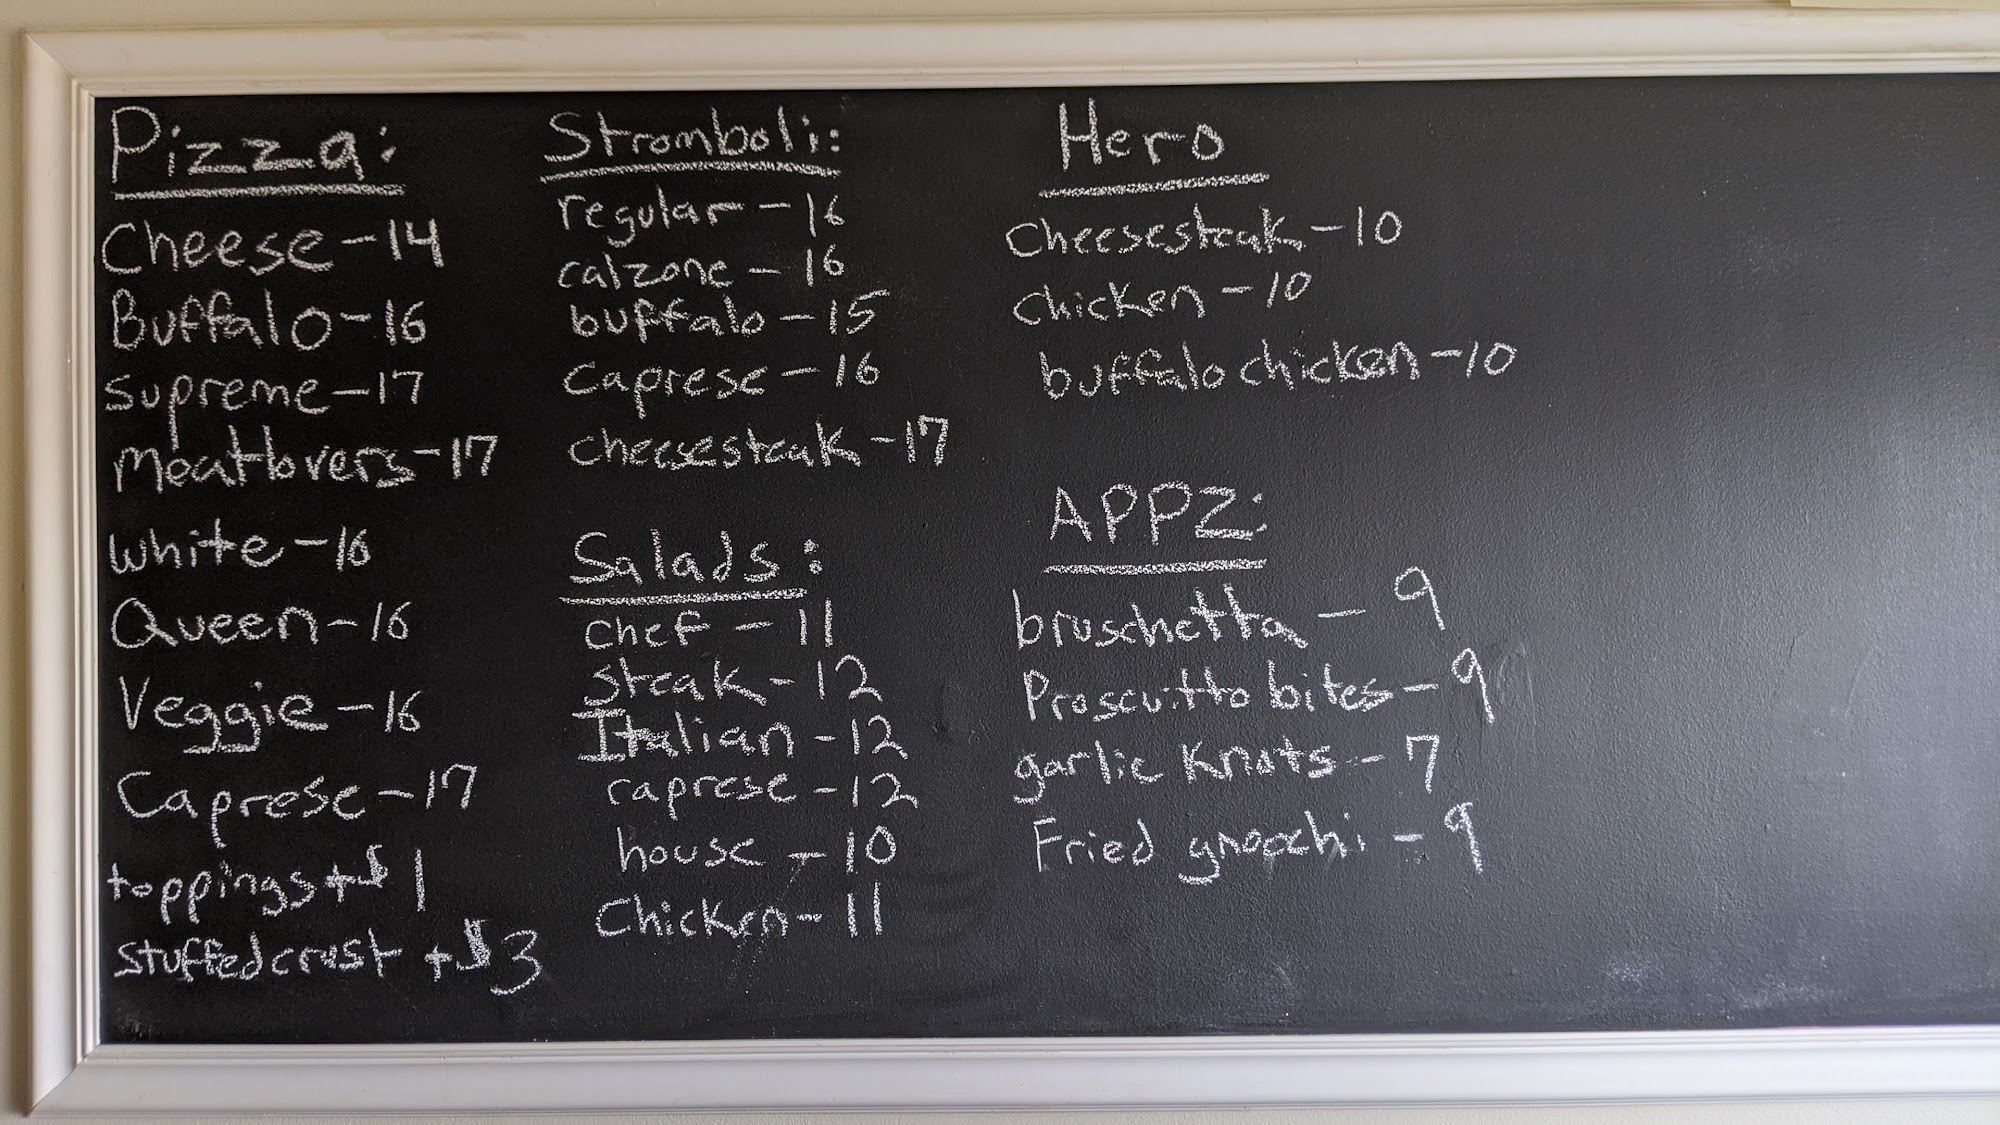 Pizza:
Cheese-14
Buffalo-16
Supreme-17
Meatlovers-17
white-16
Queen-16
Veggie-16
Caprese-17
toppings+$1
stuffed crust +$3
Stromboli:
regular-16
calzone-16
buffalo-15
caprese-16
cheesesteak-17
Salads:
chef-11
steak-12
Italian-12
caprese-12
house-10
Chicken-11
Hero
Cheesesteak-10
chicken-10
buffalo chicken-10
APPZ:
bruschetta-9
Proscuitto bites-9
garlic Knots-7
Fried gnocchi-9